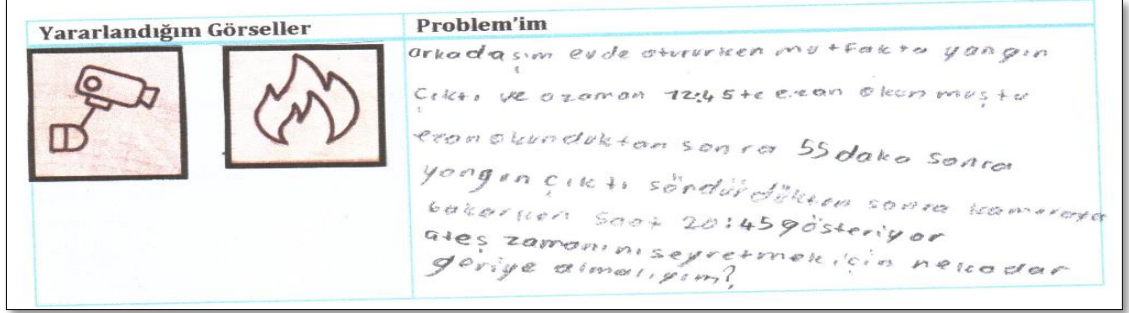 Yararlandığım Görseller
Problem'im
arkadaşım evde otururken mutfakta yangın
Çıktı ve ozaman 12:45te ezan okunmuştu
ezan okunduktan sonra 55 daka sonra
yangın çıktı söndürdükten sonra kameraya
bakarken saat 20:45 gösteriyor
ateş zamanını seyretmek için nekadar
geriye almalıyım?